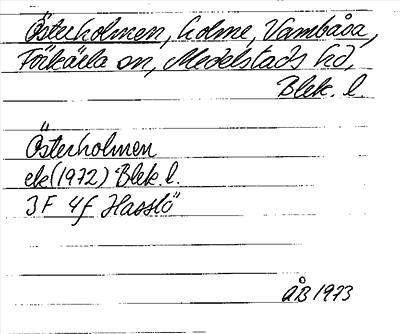 Österholmen, holme, Vambåsa,
Förkärla sn, Medelstads hd,
Blek. l.
Österholmen
ek(1972) Blek. l.
3F 4f Hasslö
ÅB 1973